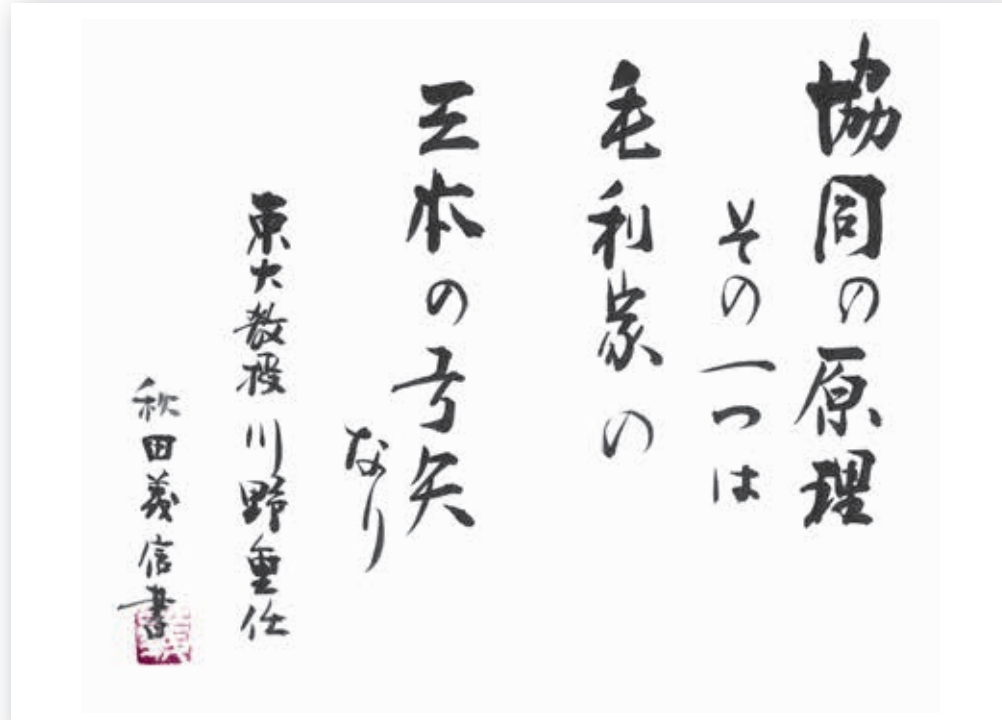 協同の原理
その一つは
毛利家の
三本の弓矢
なり
東大教授 川野重任
秋田義信書